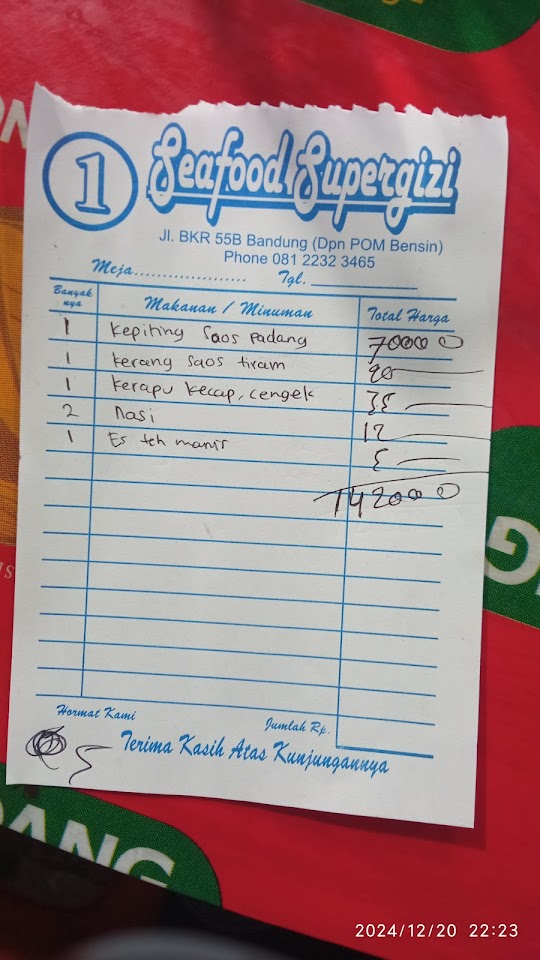 1 Seafood Supergizi
Jl. BKR 55B Bandung (Dpn POM Bensin)
Phone 081 2232 3465
Meja.................... Tgl. _______________
Banyak nya Makanan / Minuman Total Harga
1 kepiting saos padang 70000
1 kerang saos tiram 20
1 kerapu kecap, cengek 35
2 nasi 12
1 Es teh manis 5
142000
Hormat Kami Jumlah Rp.
5 Terima Kasih Atas Kunjungannya
DANG
2024/12/20 22:23